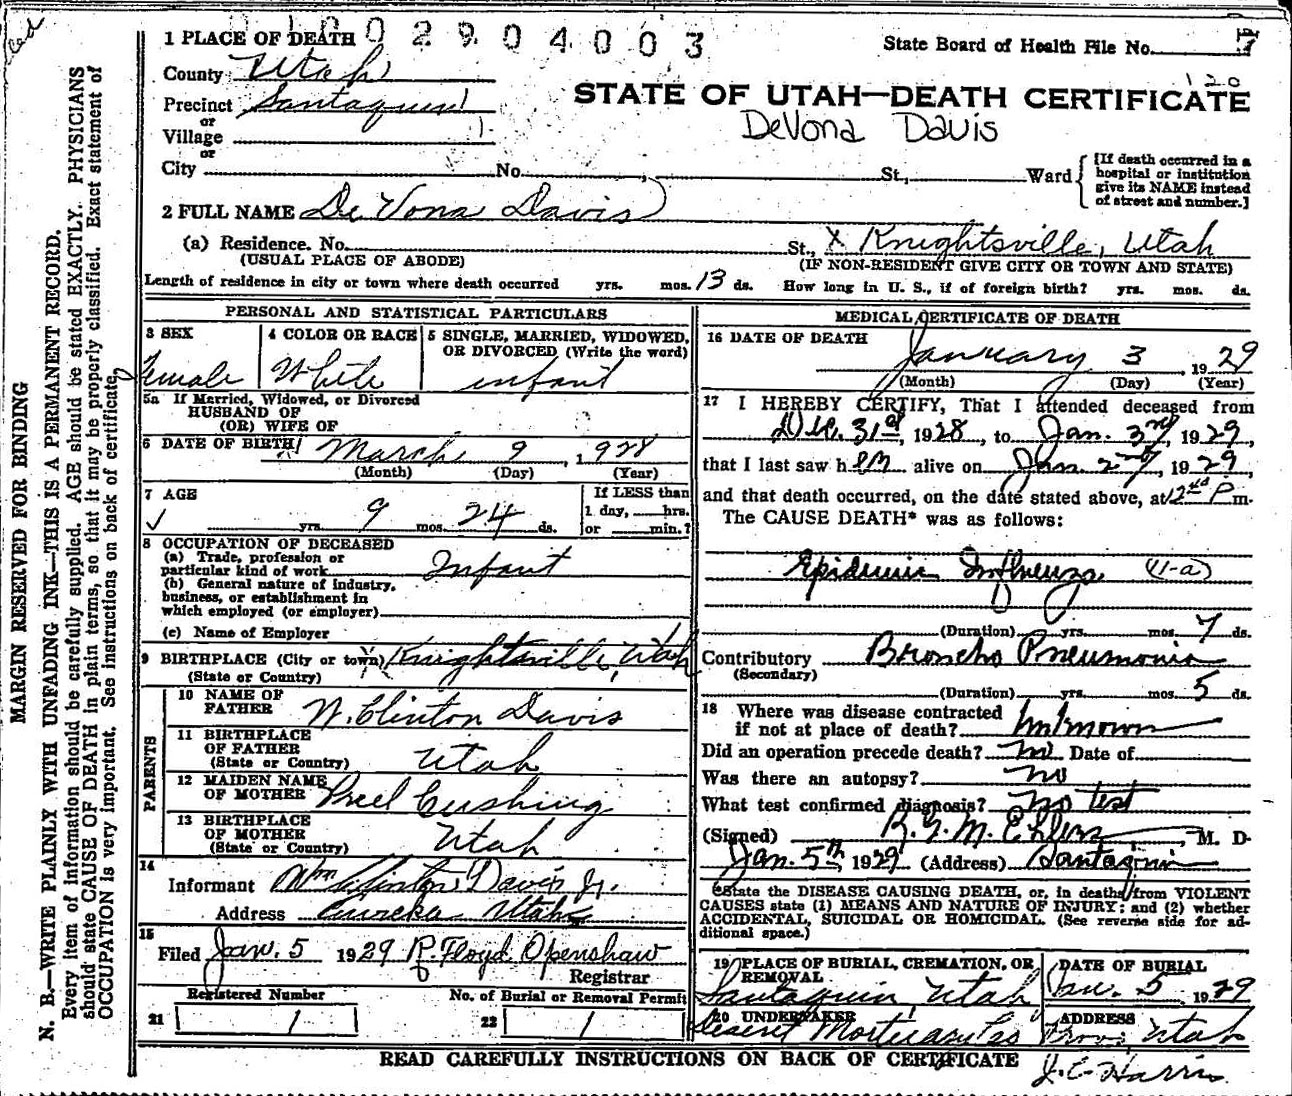 0 1 0 0 2 9 0 4 0 0 3
1 PLACE OF DEATH
State Board of Health File No.
County Utah
120
Precinct Santaquin
STATE OF UTAH—DEATH CERTIFICATE
or
DeVona Davis
Village
or
City No. St., Ward
[If death occurred in a
hospital or institution
give its NAME instead
of street and number.]
2 FULL NAME De Vona Davis
(a) Residence. No. St., X Knightsville, Utah
(USUAL PLACE OF ABODE) (IF NON-RESIDENT GIVE CITY OR TOWN AND STATE)
Length of residence in city or town where death occurred yrs. mos. 13 ds. How long in U. S., if of foreign birth? yrs. mos. ds.
PERSONAL AND STATISTICAL PARTICULARS
3 SEX
Female
4 COLOR OR RACE
White
5 SINGLE, MARRIED, WIDOWED,
OR DIVORCED (Write the word)
infant
5a If Married, Widowed, or Divorced
HUSBAND OF
(OR) WIFE OF
6 DATE OF BIRTH March 9, 1928
(Month) (Day) (Year)
7 AGE
yrs. 9 mos. 24 ds.
If LESS than
1 day, hrs.
or min.?
8 OCCUPATION OF DECEASED
(a) Trade, profession or
particular kind of work Infant
(b) General nature of industry,
business, or establishment in
which employed (or employer)
(c) Name of Employer
9 BIRTHPLACE (City or town) Knightsville, Utah
(State or Country)
PARENTS
10 NAME OF
FATHER W. Clinton Davis
11 BIRTHPLACE
OF FATHER
(State or Country) Utah
12 MAIDEN NAME
OF MOTHER Cushing
13 BIRTHPLACE
OF MOTHER
(State or Country) Utah
14
Informant Wm Clinton Davis Jr.
Address Eureka Utah
15
Filed Jan. 5 1929 R. Floyd Openshaw
Registrar
Registered Number
21 1
No. of Burial or Removal Permit
22 1
MEDICAL CERTIFICATE OF DEATH
16 DATE OF DEATH
January 3, 1929
(Month) (Day) (Year)
17 I HEREBY CERTIFY, That I attended deceased from
Dec. 31st, 1928, to Jan. 3rd, 1929,
that I last saw h em alive on Jan. 2nd, 1929,
and that death occurred, on the date stated above, at P m.
The CAUSE DEATH* was as follows:
Epidemic Influenza (11-a)
(Duration) yrs. mos. 7 ds.
Contributory Broncho Pneumonia
(Secondary)
(Duration) yrs. mos. 5 ds.
18 Where was disease contracted
if not at place of death? Unknown
Did an operation precede death? no Date of
Was there an autopsy? no
What test confirmed diagnosis? no test
(Signed) M. D.
Jan. 5th, 1929 (Address) Santaquin
*State the DISEASE CAUSING DEATH, or, in deaths from VIOLENT
CAUSES state (1) MEANS AND NATURE OF INJURY; and (2) whether
ACCIDENTAL, SUICIDAL OR HOMICIDAL. (See reverse side for ad-
ditional space.)
19 PLACE OF BURIAL, CREMATION, OR
REMOVAL
Santaquin, Utah
DATE OF BURIAL
Jan. 5 1929
20 UNDERTAKER
Deseret Mortuaries Co
ADDRESS
Provo, Utah
J. C. Harris
READ CAREFULLY INSTRUCTIONS ON BACK OF CERTIFICATE
MARGIN RESERVED FOR BINDING
N. B.—WRITE PLAINLY WITH UNFADING INK—THIS IS A PERMANENT RECORD.
Every item of information should be carefully supplied. AGE should be stated EXACTLY. PHYSICIANS
should state CAUSE OF DEATH in plain terms, so that it may be properly classified. Exact statement of
OCCUPATION is very important. See instructions on back of certificate.